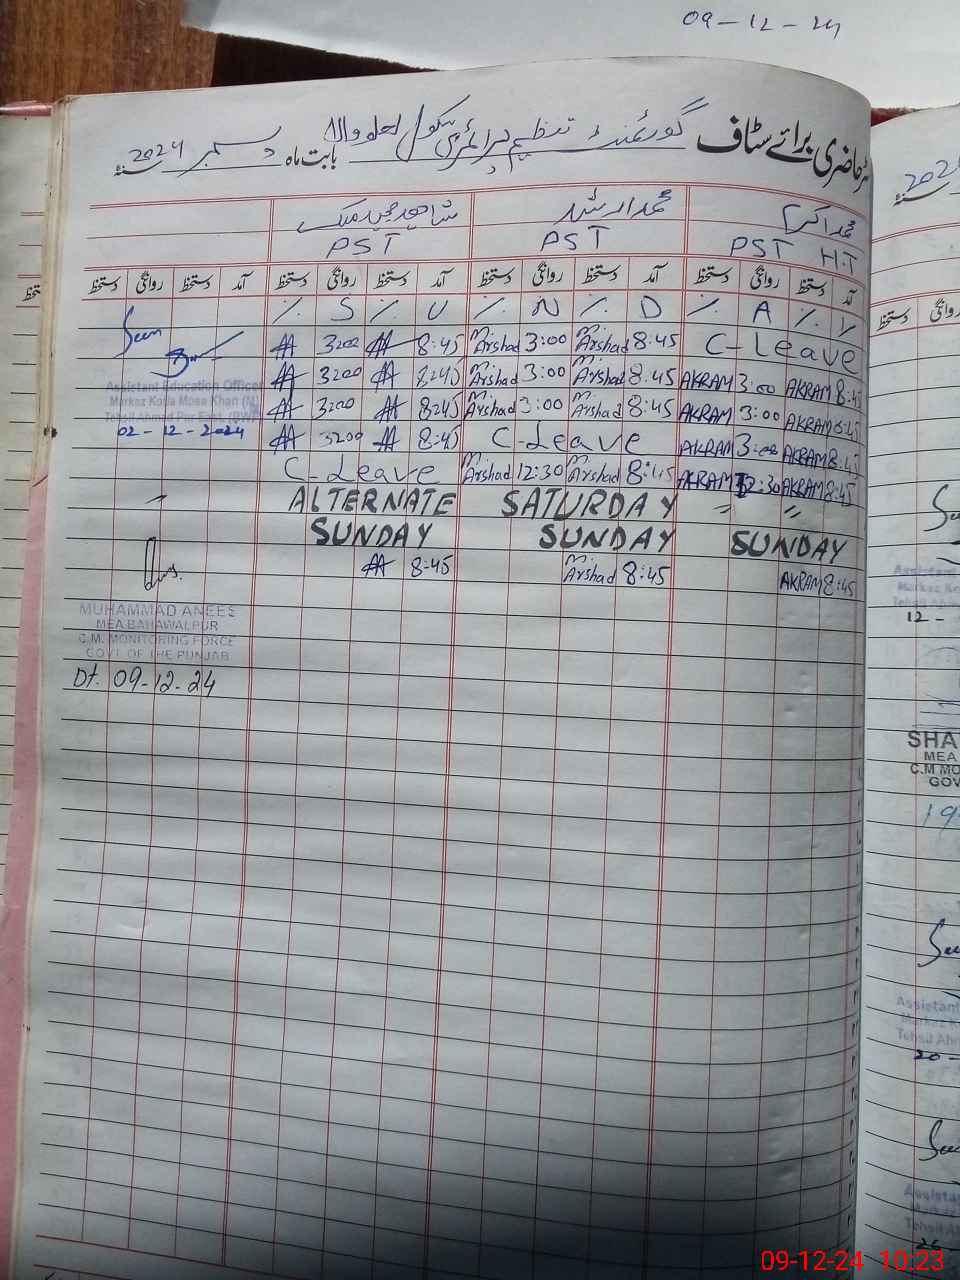 09-12-24
رجسٹر حاضری برائے سٹاف گورنمنٹ تنظیم پرائمری سکول لعلو والا بابت ماہ دسمبر 2024
محمد اکرم محمد ارشد شاھد مجید ملک
PST H.T PST PST
آمد دستخط روانگی دستخط آمد دستخط روانگی دستخط آمد دستخط روانگی دستخط آمد دستخط روانگی دستخط
٪ S ٪ U ٪ N ٪ D ٪ A ٪ Y
Seen 3:00 8:45 M. Arshad 3:00 M. Arshad 8:45 C-Leave
Assistant Education Officer 3:00 8:45 M. Arshad 3:00 M. Arshad 8:45 AKRAM 3:00 AKRAM 8:45
Markaz Kotla Mosa Khan (M)
Tehsil Ahmad Pur East (BWP) 3:00 8:45 M. Arshad 3:00 M. Arshad 8:45 AKRAM 3:00 AKRAM 8:45
02-12-2024 3:00 8:45 C-Leave AKRAM 3:00 AKRAM 8:45
C-Leave M. Arshad 12:30 M. Arshad 8:45 AKRAM 12:30 AKRAM 8:45
ALTERNATE SATURDAY " "
SUNDAY SUNDAY SUNDAY
8:45 M. Arshad 8:45 AKRAM 8:45
MUHAMMAD ANEES
MEA BAHAWALPUR
C.M. MONITORING FORCE
GOVT OF THE PUNJAB
Dt. 09-12-24
2024
دستخط
Assistant
Markaz Ko
Tehsil Ahm
12-
SHA
MEA
C.M MO
GOV
19
Assistant
Markaz K
Tehsil Ahm
20-
Assista
Tehsil A
26
09-12-24 10:23